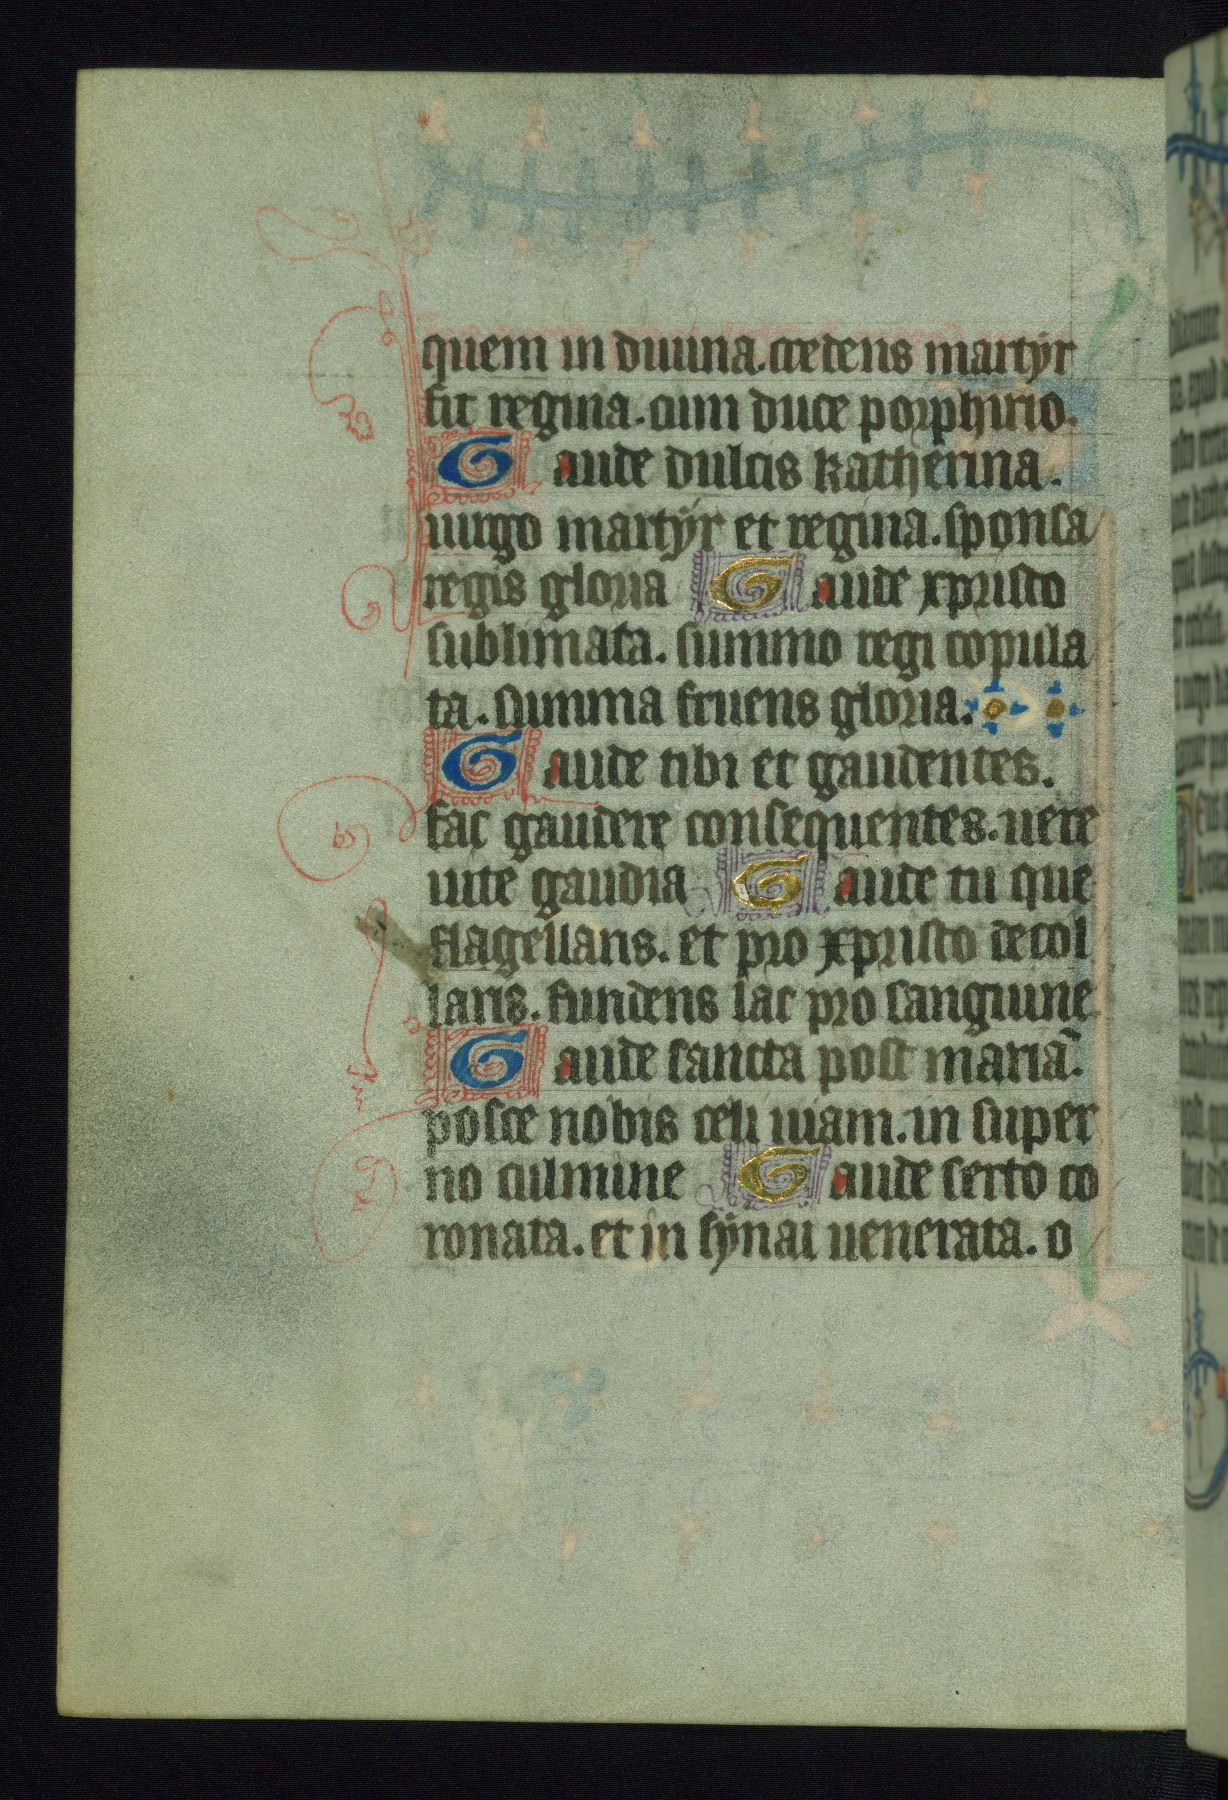 quem in diuina. credens martyr
fit regina. cum duce porphirio.
Gaude dulcis katherina.
uirgo martyr et regina. sponsa
regis gloria Gaude xpristo
sublimata. summo regi copula
ta. summa fruens gloria.
Gaude tibi et gaudentes.
fac gaudere consequentes. uere
uite gaudia Gaude tu que
flagellaris. et pro xpristo decol
laris. fundens lac pro sanguine
Gaude sancta post mariā.
posce nobis celi uiam. in super
no culmine Gaude serto co
ronata. et in synai uenerata. o